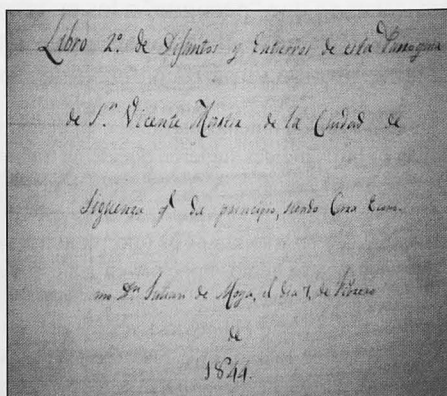 Libro 2º. de Difuntos y Entierros de esta Parroquia
de S.n Vicente Martir de la Ciudad de
Sigüenza q.e da principio, siendo Cura Econ-
mo D.n Julian de Moya, el dia 1 de Febrero
de
1844.